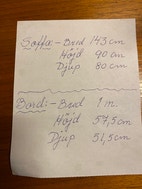 Soffa: - Bred 143 cm
Höjd 90 cm
Djup 80 cm
Bord: - Bred 1 m.
Höjd 57,5 cm
Djup 51,5 cm